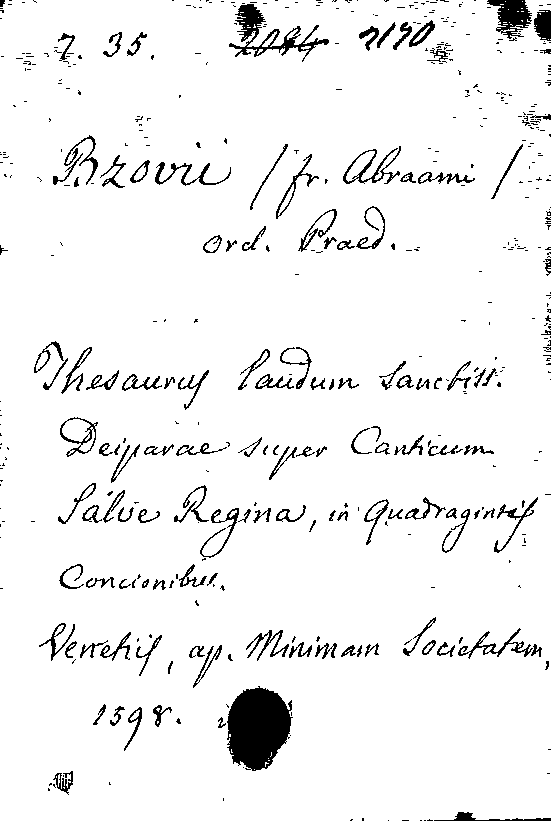 7. 35. 2084 2170
Bzovii / fr. Abraami /
ord. Praed.
Thesaurus laudum sanctiss.
Deiparae super Canticum
Salve Regina, in Quadragintis
Concionibus.
Venetiis, ap. Minimam Societatem,
1598.